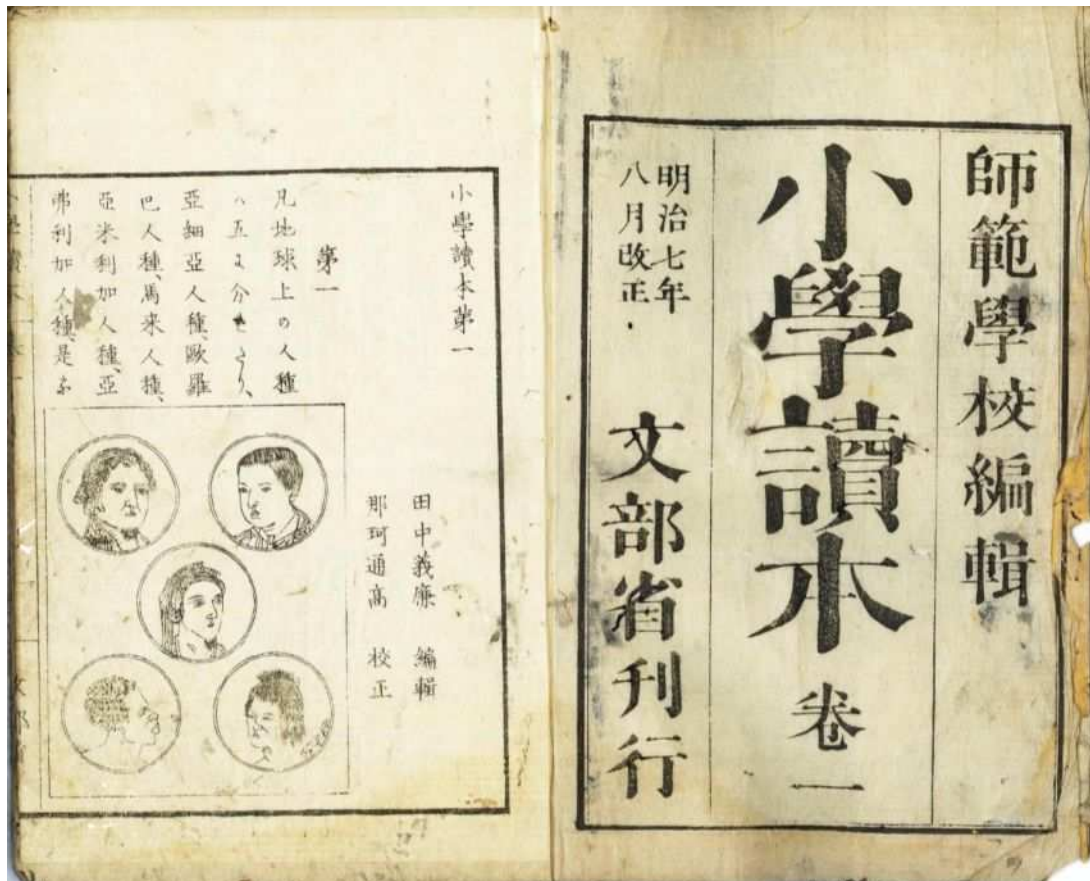 師範學校編輯
小學讀本 卷一
明治七年
八月改正
文部省刊行
小學讀本第一
田中義廉 編輯
那珂通高 校正
第一
凡地球上の人種
ハ五に分れたり、
亞細亞人種、歐羅
巴人種、馬来人種、
亞米利加人種、亞
弗利加人種、是な